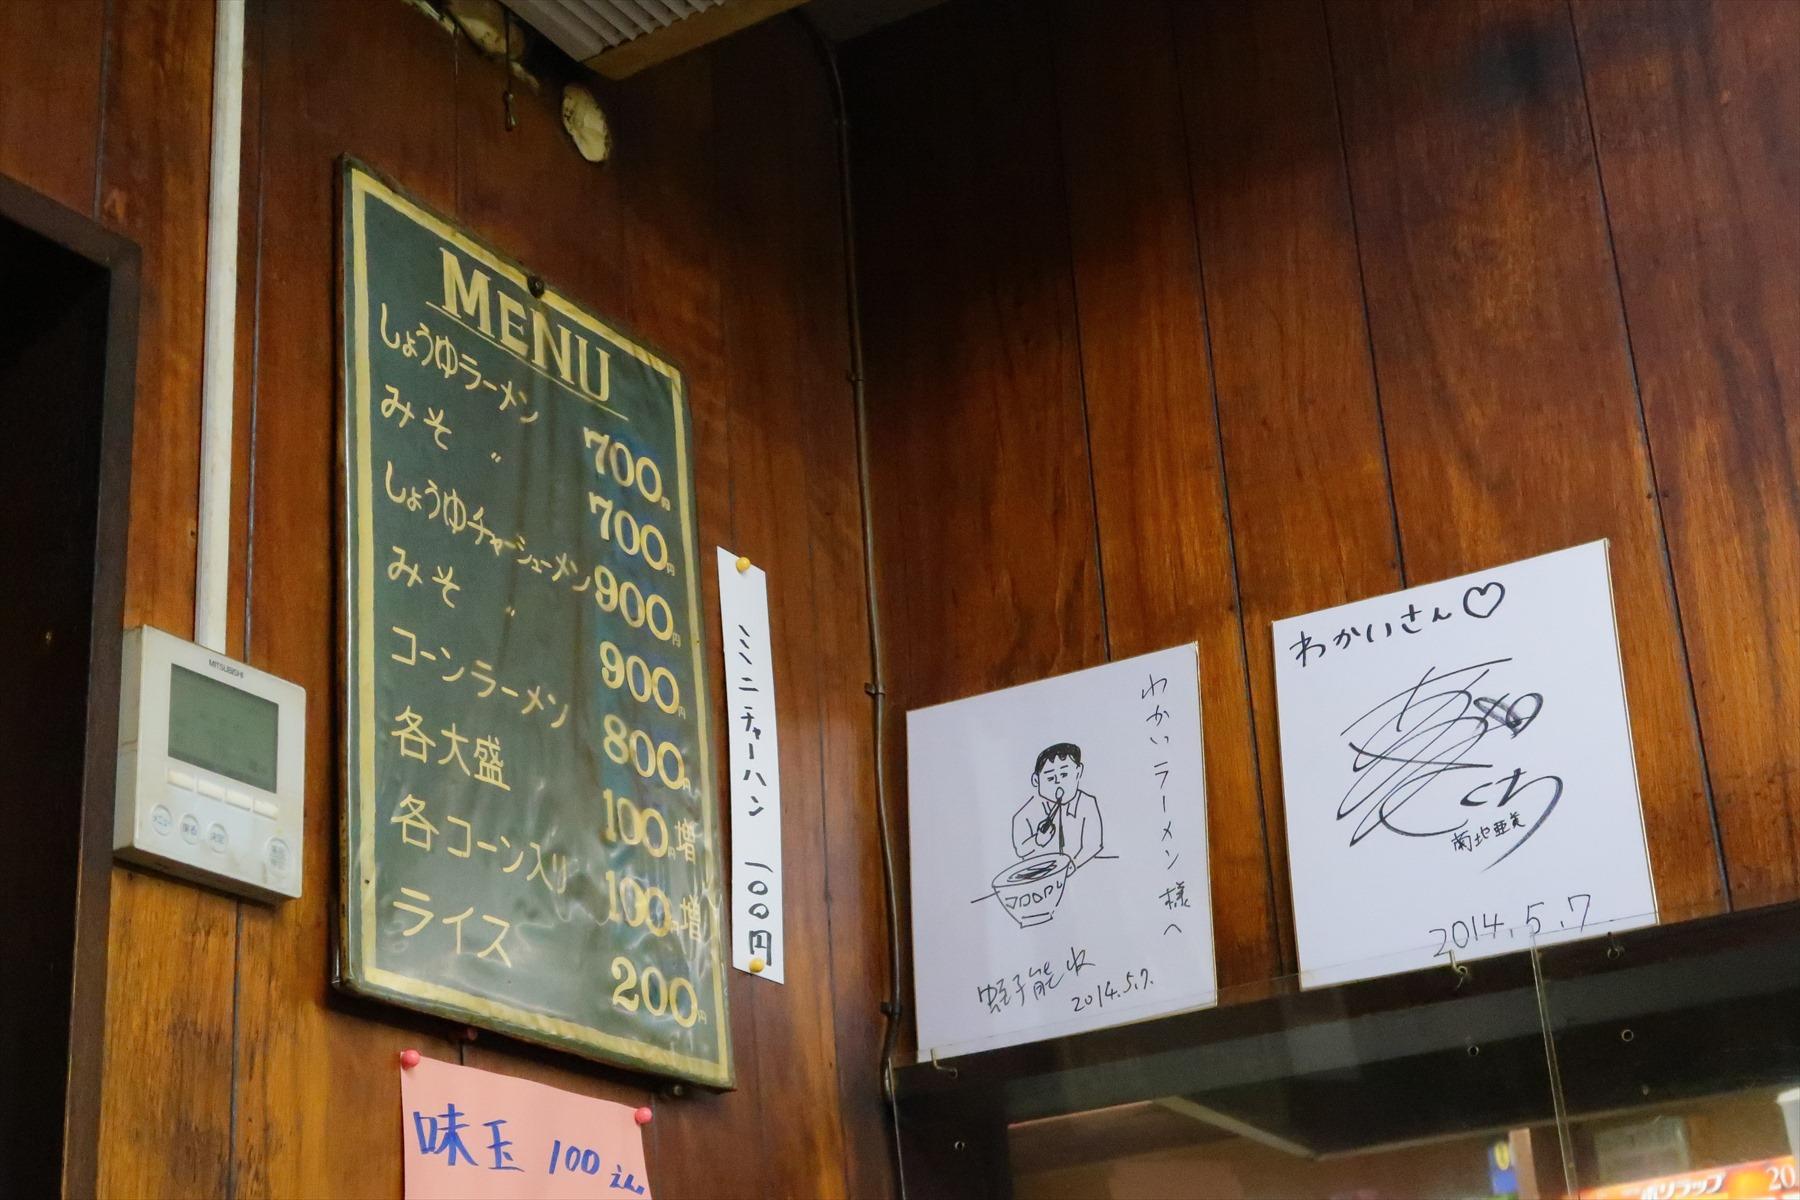 MENU
しょうゆラーメン 700円
みそ 〃 700円
しょうゆチャーシューメン 900円
みそ 〃 900円
コーンラーメン 800円
各大盛 100円増
各コーン入り 100円増
ライス 200円
ミニチャーハン 100円
味玉 100えん
MITSUBISHI
メニュー 戻る 決定
わかいラーメン様へ
蛭子能収
2014.5.7.
わかいさん♡
菊地亜美
2014.5.7
ポリラップ 20